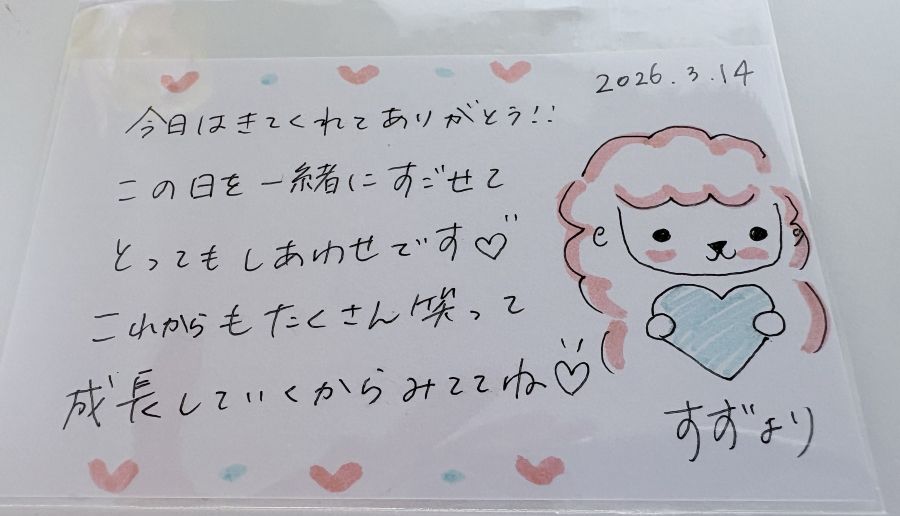 2026.3.14
今日はきてくれてありがとう!!
この日を一緒にすごせて
とってもしあわせです♡
これからもたくさん笑って
成長していくからみててね♡
すずより